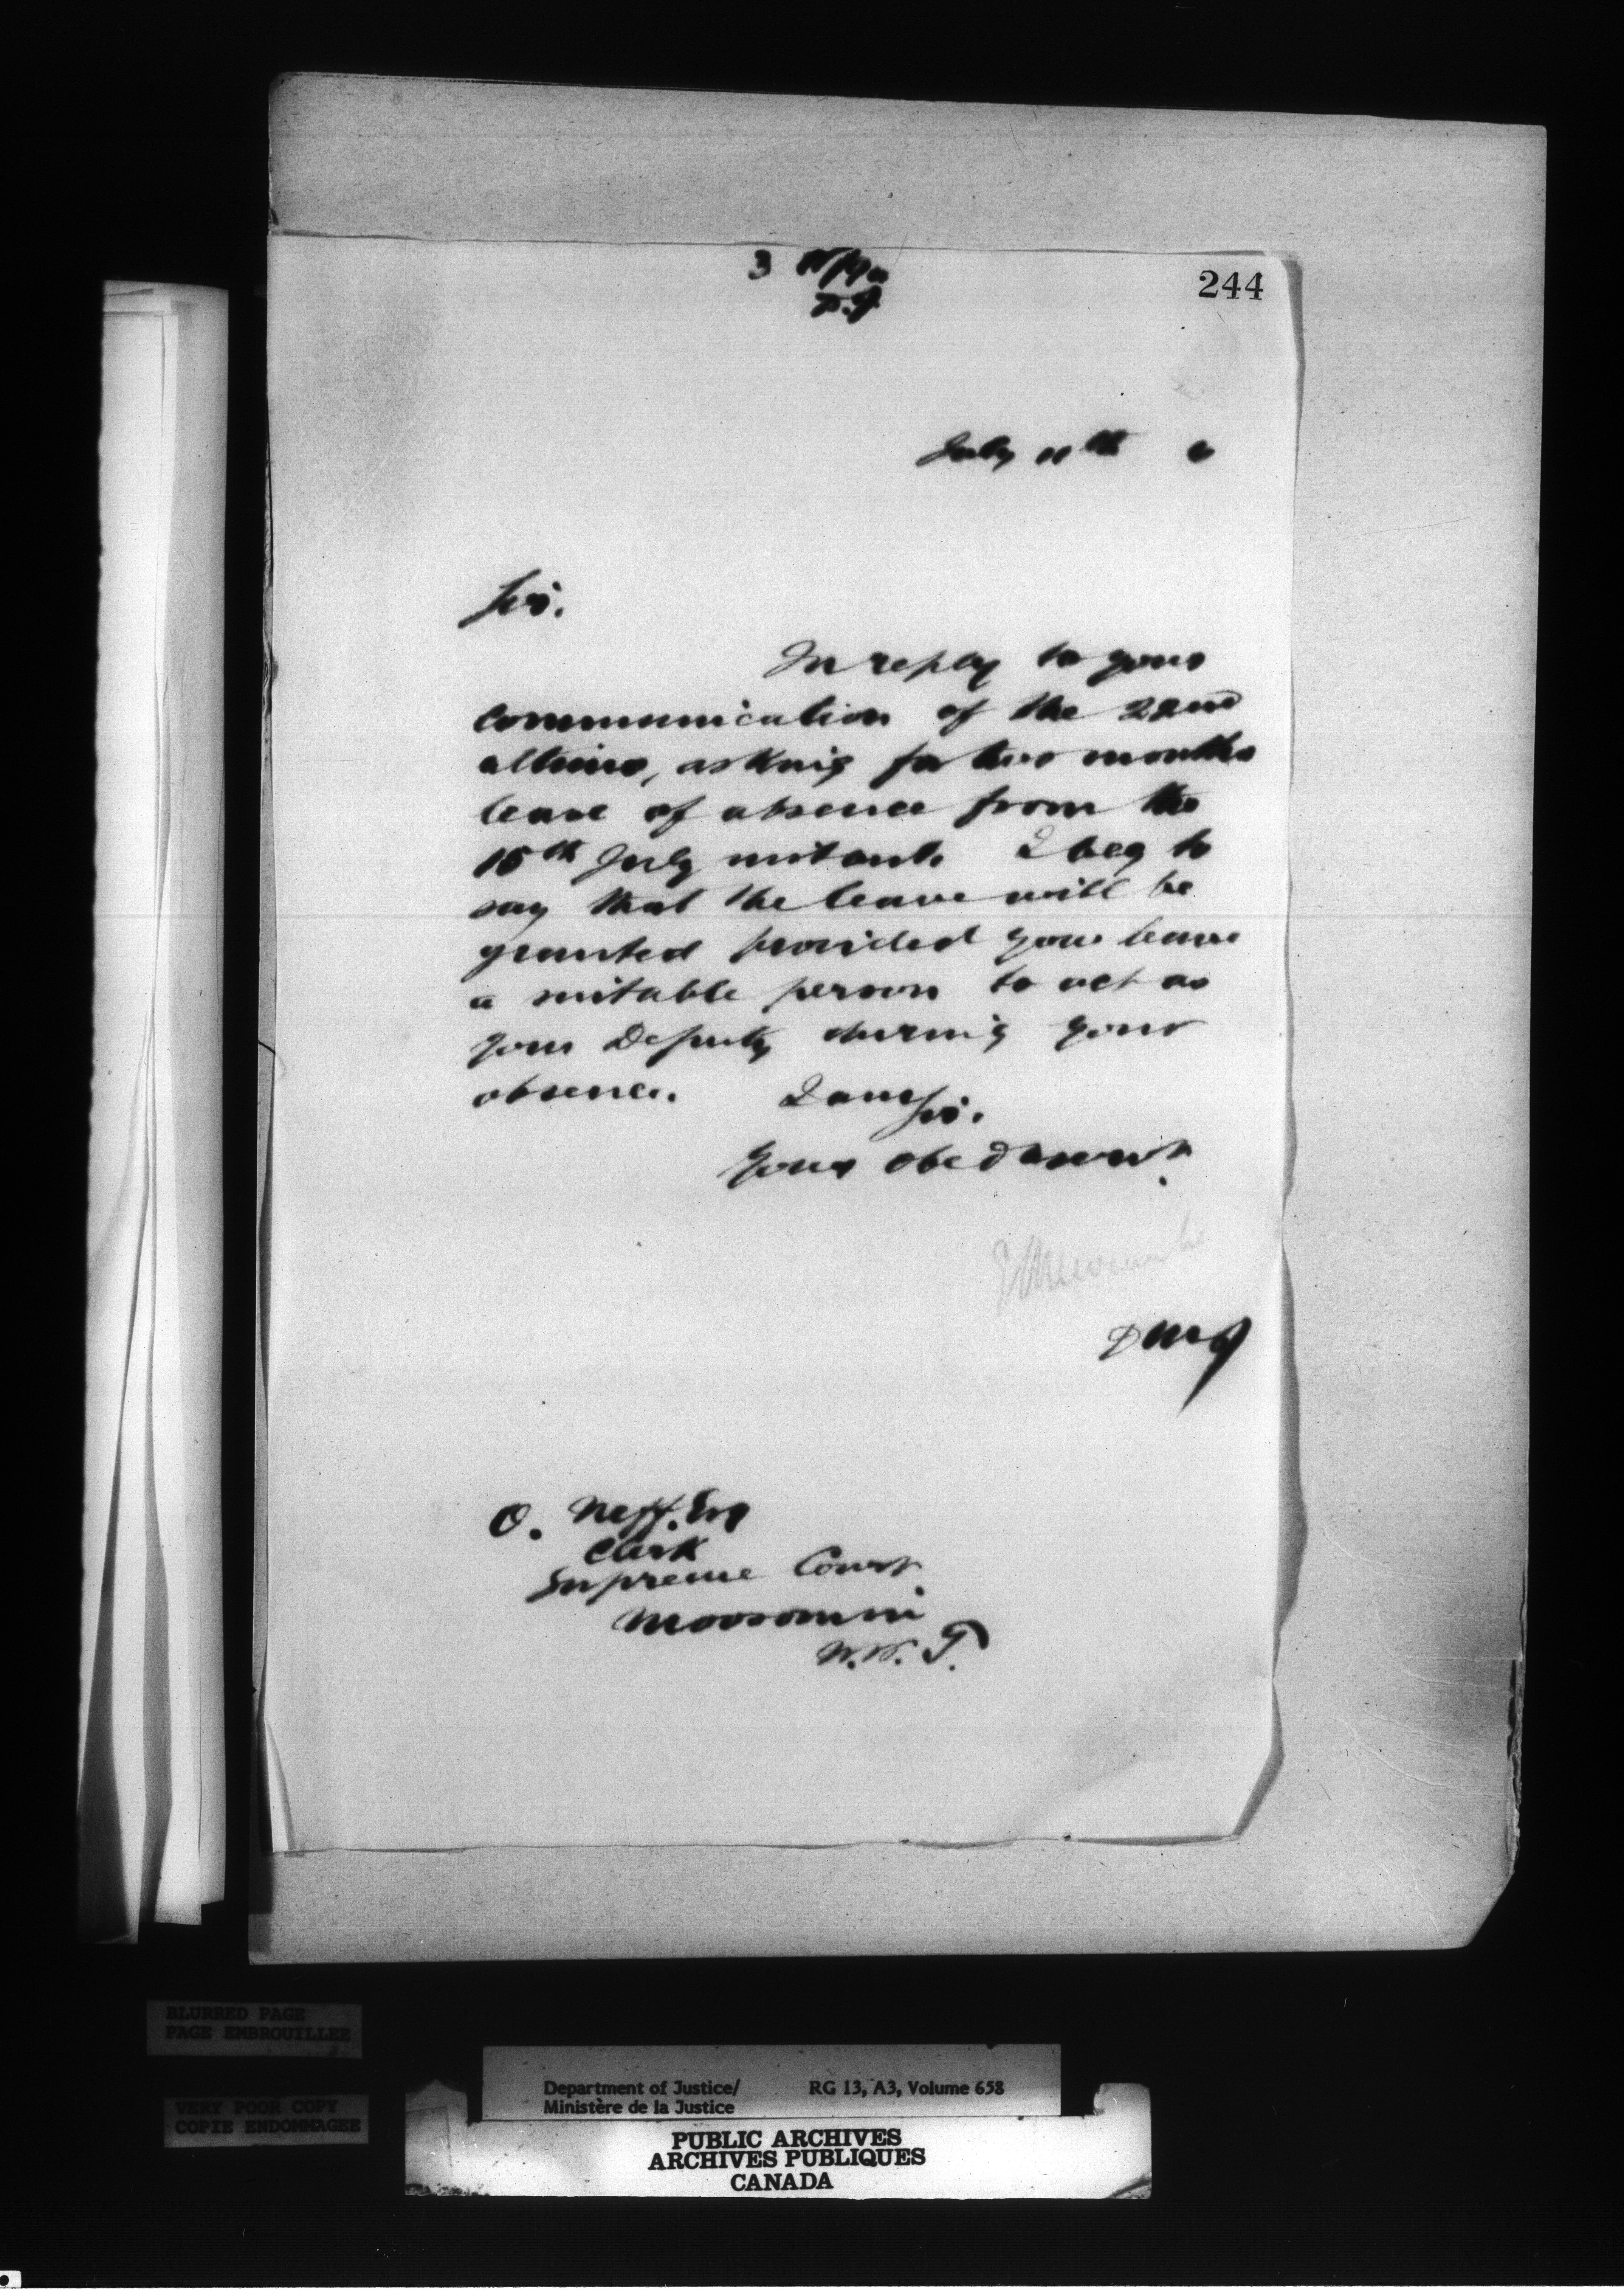 3
244
July 11th 6
Sir.
In reply to your
communication of the 22nd
ultimo, asking for two months
leave of absence from the
15th July instant. I beg to
say that the leave will be
granted provided you leave
a suitable person to act as
your Deputy during your
absence. I am
Sir.
Your obed servt.
E L Newcombe
DMJ
O. Neff. Esq
Clerk
Supreme Court
Moosomin
N.W.T.
BLURRED PAGE
PAGE EMBROUILLEE
VERY POOR COPY
COPIE ENDOMMAGEE
Department of Justice/ RG 13, A3, Volume 658
Ministère de la Justice
PUBLIC ARCHIVES
ARCHIVES PUBLIQUES
CANADA